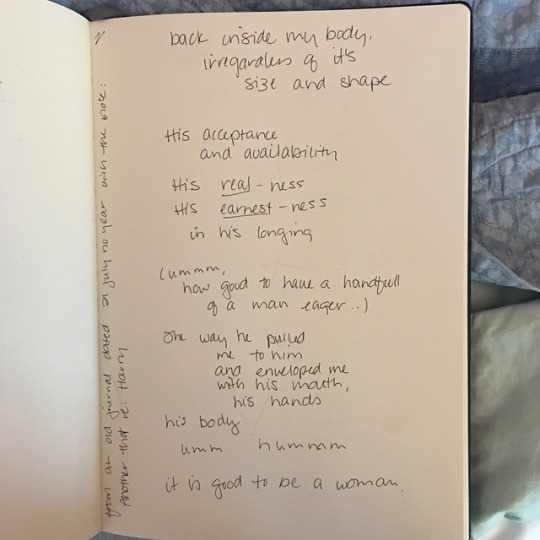 back inside my body,
irregardless of it's
size and shape
His acceptance
and availability
His real-ness
His earnest-ness
in his longing
(ummm,
how good to have a handfull
of a man eager...)
The way he pulled
me to him
and enveloped me
with his mouth,
his hands
his body
umm hummmm
it is good to be a woman.
from an old journal dated 21 july no year with the note:
Another that re: Harry